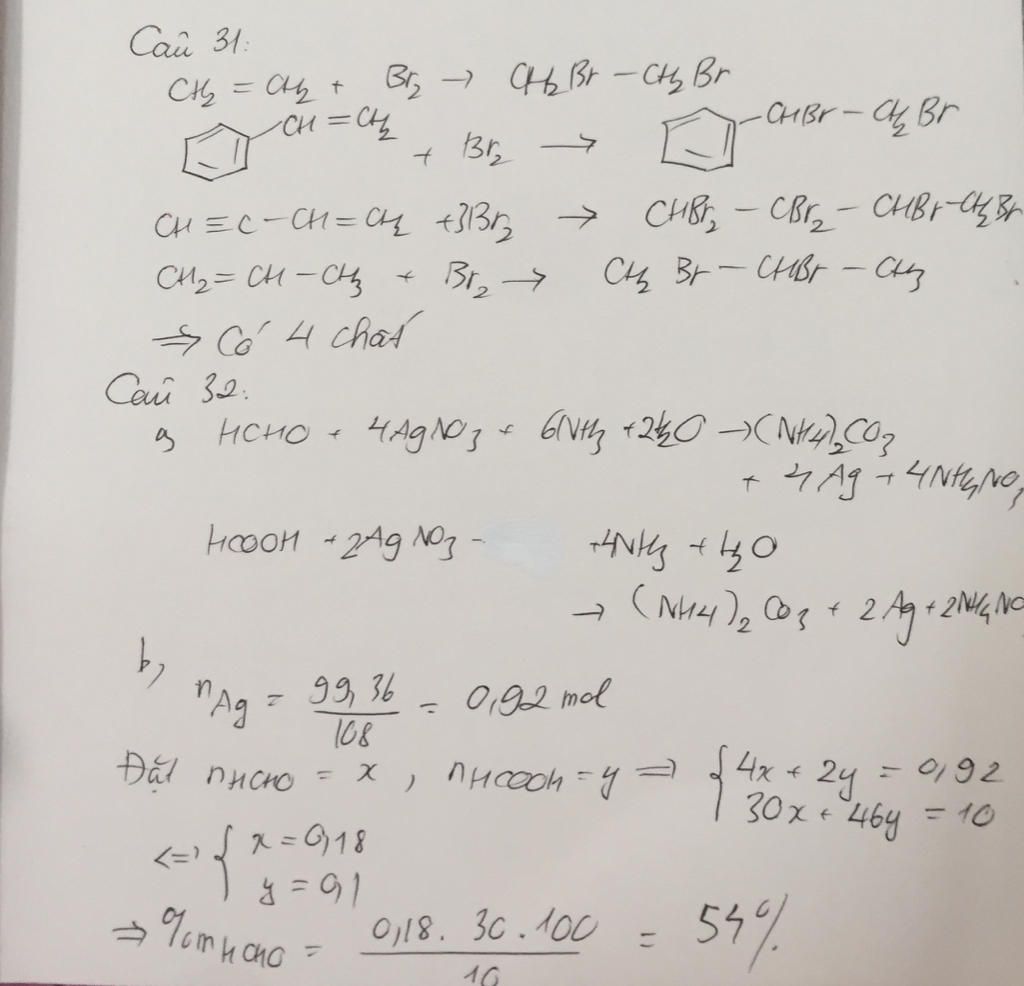 Câu 31:
CH₂ = CH₂ + Br₂ → CH₂Br – CH₂Br
CH = CH₂ + Br₂ → CHBr – CH₂Br
CH ≡ C – CH = CH₂ + 3Br₂ → CHBr₂ – CBr₂ – CHBr – CH₂Br
CH₂ = CH – CH₃ + Br₂ → CH₂Br – CHBr – CH₃
⇒ Có 4 chất
Câu 32:
a, HCHO + 4AgNO₃ + 6NH₃ + 2H₂O → (NH4)₂CO₃
+ 4Ag + 4NH₄NO₃
HCOOH + 2AgNO₃ + 4NH₃ + H₂O
→ (NH4)₂CO₃ + 2Ag + 2NH₄NO
b,
nAg = 99,36 / 108 = 0,92 mol
Đặt nHCHO = x, nHCOOH = y ⇒ { 4x + 2y = 0,92
30x + 46y = 10
<=> { x = 0,18
y = 0,1
⇒ %mHCHO = 0,18 . 30 . 100 / 10 = 54%